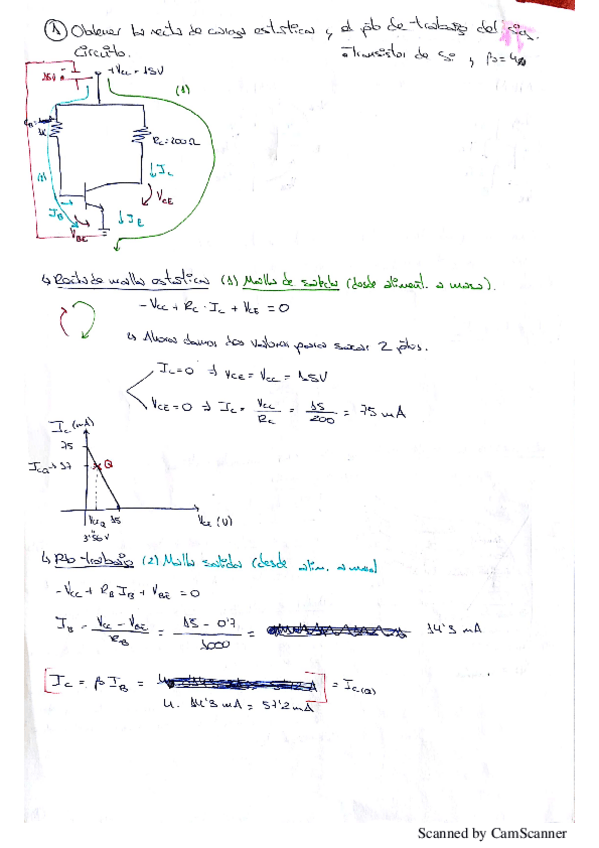 ① Obtener la recta de carga estática y el pto de trabajo del sig.
circuito. Transistor de Si y β=4
+Vcc = 15V
15V
(1)
Rc=200Ω
1K
↓Ic
VCE
(2)
IB
↓IE
VBE
↳ Recta de malla estática (1) Malla de salida (desde aliment. a masa).
-Vcc + Rc · Ic + VCE = 0
↳ Ahora damos dos valores para sacar 2 ptos.
Ic=0 ⇒ VCE = Vcc = 15V
VCE=0 ⇒ Ic = Vcc/Rc = 15/200 = 75 mA
Ic (mA)
75
ICQ→57 Q
VCEQ 15 VCE (V)
3'56 V
↳ Pto trabajo (2) Malla salida (desde alim. a masa)
-Vcc + RB IB + VBE = 0
IB = Vcc - VBE/RB = 15 - 0'7/1000 = 14'3 mA
Ic = β IB = = Ic(Q)
4 · 14'3 mA = 57'2 mA
Scanned by CamScanner